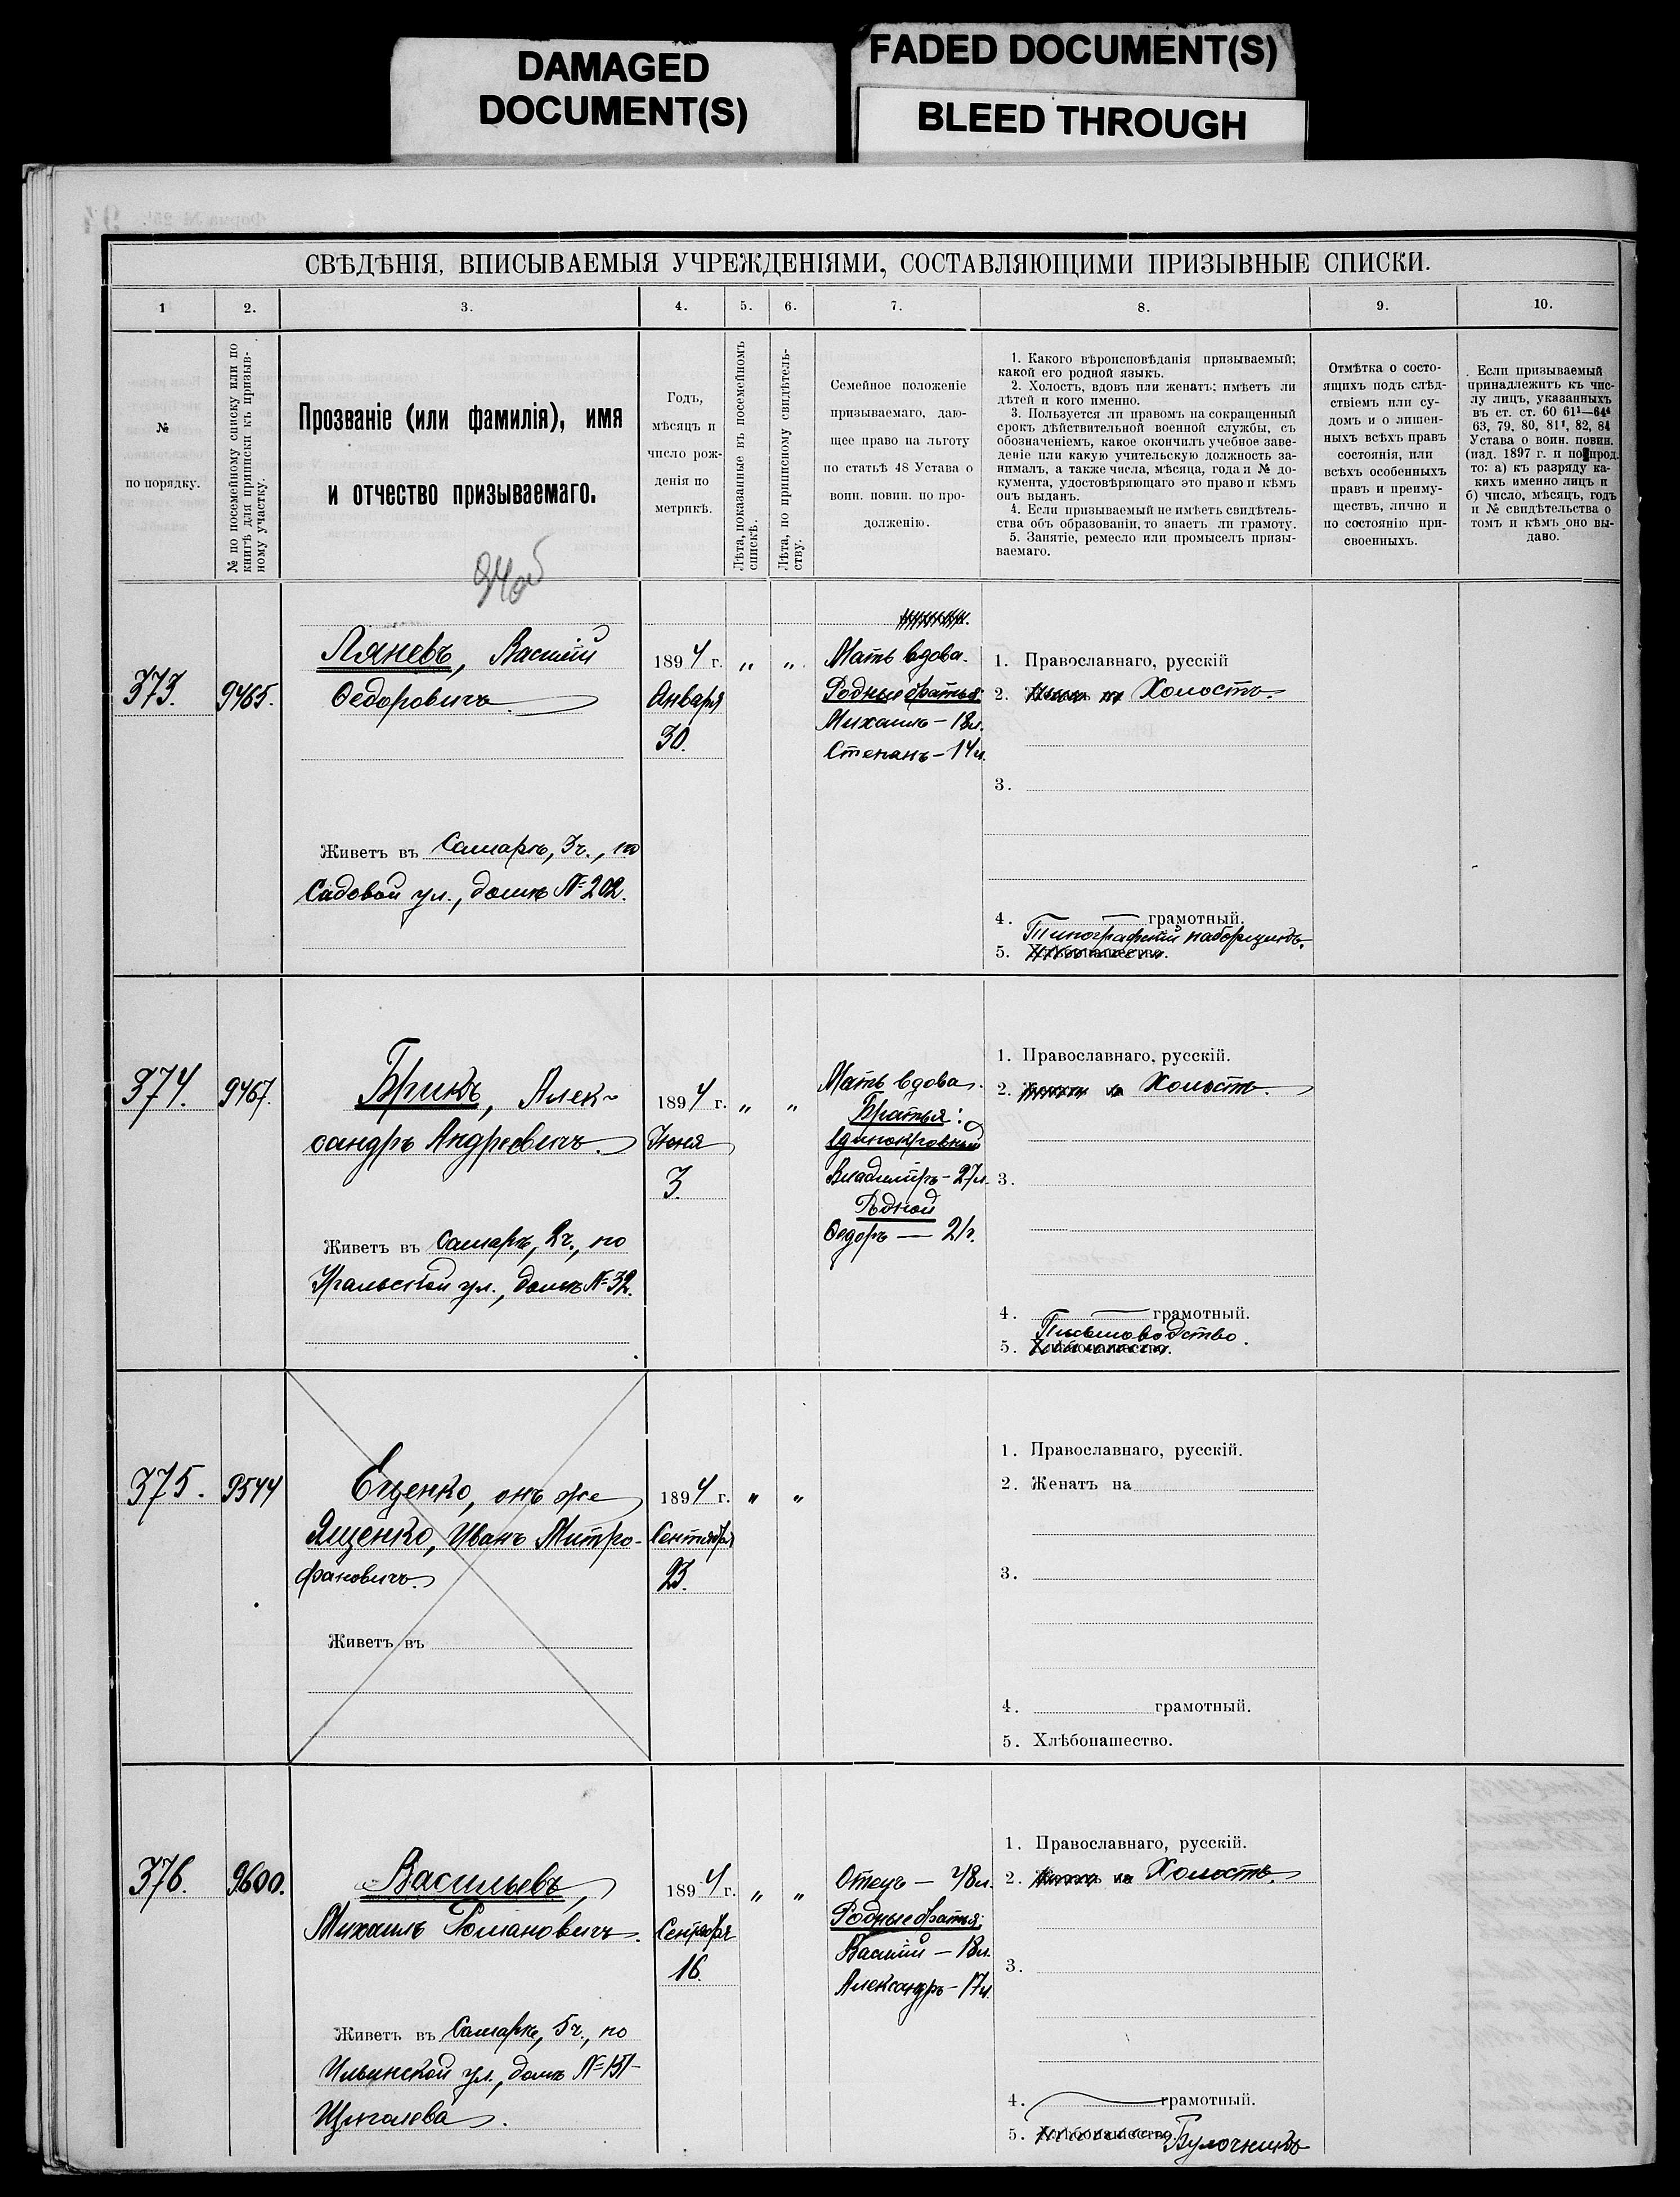 DAMAGED
DOCUMENT(S)
FADED DOCUMENT(S)
BLEED THROUGH
СВѢДѢНІЯ, ВПИСЫВАЕМЫЯ УЧРЕЖДЕНІЯМИ, СОСТАВЛЯЮЩИМИ ПРИЗЫВНЫЕ СПИСКИ.
1 2. 3. 4. 5. 6. 7. 8. 9. 10.
№
по порядку.
№ по посемейному списку или по
книгѣ для приписки къ призыв-
ному участку.
Прозваніе (или фамилія), имя
и отчество призываемаго.
Годъ,
мѣсяцъ и
число рож-
денія по
метрикѣ.
Лѣта, показанные въ посемейномъ
спискѣ.
Лѣта, по приписному свидѣтель-
ству.
Семейное положеніе
призываемаго, даю-
щее право на льготу
по статьѣ 48 Устава о
воин. повин. по про-
долженію.
1. Какого вѣроисповѣданія призываемый;
какой его родной языкъ.
2. Холостъ, вдовъ или женатъ; имѣетъ ли
дѣтей и кого именно.
3. Пользуется ли правомъ на сокращенный
срокъ дѣйствительной военной службы, съ
обозначеніемъ, какое окончилъ учебное заве-
деніе или какую учительскую должность за-
нималъ, а также числа, мѣсяца, года и № до-
кумента, удостовѣряющаго это право и кѣмъ
онъ выданъ.
4. Если призываемый не имѣетъ свидѣтель-
ства объ образованіи, то знаетъ ли грамоту.
5. Занятіе, ремесло или промыселъ призы-
ваемаго.
Отмѣтка о состо-
ящихъ подъ слѣд-
ствіемъ или су-
домъ и о лишен-
ныхъ всѣхъ правъ
состоянія, или
всѣхъ особенныхъ
правъ и преиму-
ществъ, лично и
по состоянію при-
своенныхъ.
Если призываемый
принадлежитъ къ чис-
лу лицъ, указанныхъ
въ ст. ст. 60 61¹—64⁴
63, 79, 80, 81¹, 82, 84
Устава о воин. повин.
(изд. 1897 г. и по прод.
то: а) къ разряду ка-
кихъ именно лицъ и
б) число, мѣсяцъ, годъ
и № свидѣтельства о
томъ и кѣмъ оно вы-
дано.
94об
373.
9465.
Ляневъ, Василій
Ѳедоровичъ.
Живетъ въ Самарѣ, 3ч., по
Садовой ул., домъ № 202.
1894 г.
Января
30.
„ „
Мать вдова.
Родные братья:
Михаилъ — 18л.
Степанъ — 14л.
1. Православнаго, русскій
2. Холостъ.
3.
4. грамотный.
Типографскій наборщикъ.
5. Хлѣбопашество.
374.
9467.
Брикъ, Алек-
сандръ Андреевичъ.
Живетъ въ Самарѣ, 2ч., по
Уральской ул., домъ № 32.
1894 г.
Іюня
3.
„ „
Мать вдова.
Братья:
Единокровный
Владиміръ — 27л.
Родной
Ѳедоръ — 21г.
1. Православнаго, русскій.
2. Холостъ.
3.
4. грамотный.
Письмоводство.
5. Хлѣбопашество.
375.
9544
Еценко, онъ же
Ященко, Иванъ Митро-
фановичъ.
Живетъ въ
1894 г.
Сентября
23.
„ „
1. Православнаго, русскій.
2. Женатъ на
3.
4. грамотный.
5. Хлѣбопашество.
376.
9600.
Васильевъ,
Михаилъ Романовичъ.
Живетъ въ Самарѣ, 5ч., по
Ильинской ул., домъ № 151
Щеголева.
1894 г.
Сентября
16.
„ „
Отецъ — 48л.
Родные братья:
Василій — 18л.
Александръ — 17л.
1. Православнаго, русскій.
2. Холостъ.
3.
4. грамотный.
5. Хлѣбопашество. Булочникъ